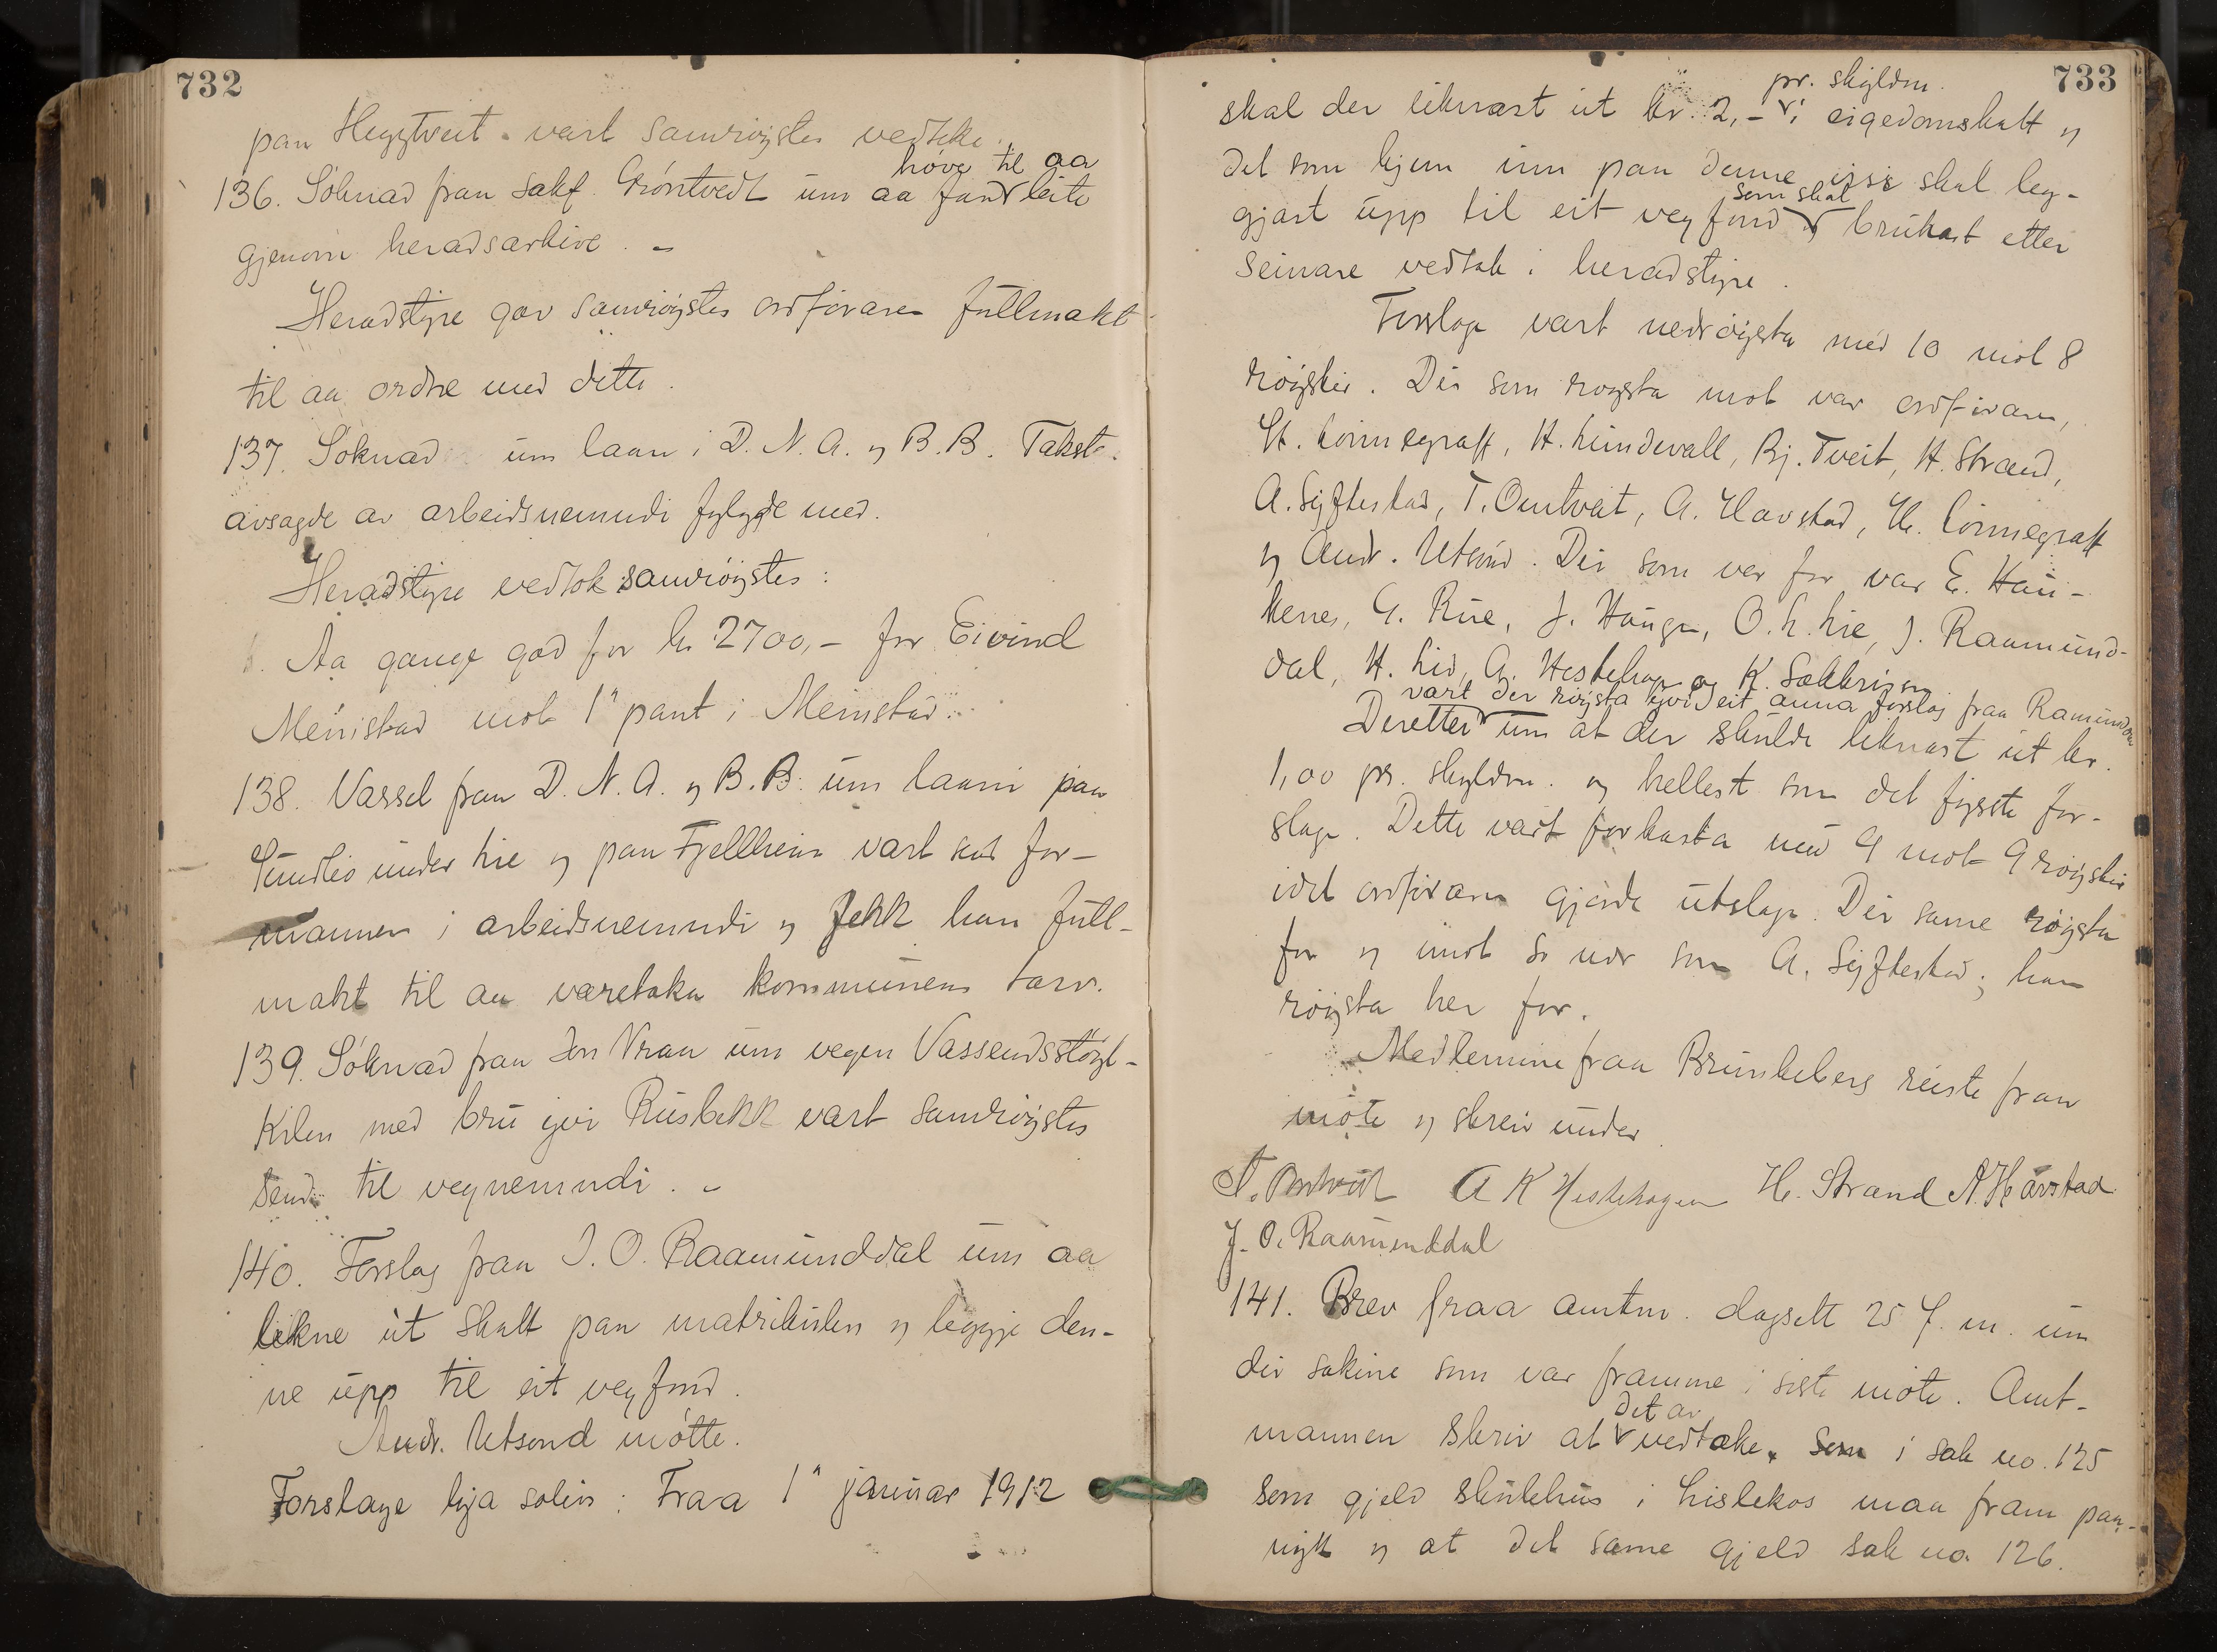 732
paa Heggtveit vart samrøystes vedteke.
høve til aa
136. Søknad fraa sakf. Grøntvedt um aa faa leite
gjenom heradsarkive. -
Heradstyre gav samrøystes ordføraren fullmakt
til aa ordne med dette.
137. Søknad um laan i D. N. A. og B. B. Takst
avsagde av arbeidsnemndi fylgde med.
Heradstyre vedtok samrøystes:
Aa gange god for kr 2700,- for Eivind
Meinstad mot 1" pant i Meinstad.
138. Varsel fraa D. N. A. og B. B. um laani paa
Sundlid under Lie og paa Fjellheim vart send for-
mannen i arbeidsnemndi og fekk han full-
makt til aa varetaka kommunens tarv.
139. Søknad fraa Jon Vraa um vegen Vassendsstøyl-
Kilen med bru yvi Rusbekk vart samrøystes
send til vegnemndi. -
140. Forslag fraa J. O. Raamunddal um aa
likne ut skatt paa matrikulen og leggje den-
ne upp til eit vegfond.
Andr. Utsond møtte.
Forslage lya solein: Fraa 1" januar 1912
733
pr. skyldm.
skal der liknast ut kr. 2,- i eigedomskatt og
det som kjem inn paa denne vise skal leg-
som skal
gjast upp til eit vegfond og brukast etter
seinare vedtak i heradstyre.
Forslage vart nedrøysta med 10 mot 8
røyster. Dei som røysta mot var ordføraren,
St. Lønnegraff, H. Lundevall, Bj. Tveit, H. Strand,
A. Syftestad, T. Omtveit, A. Havstad, H. Lønnegraff
og Andr. Utsond. Dei som var for var E. Hau-
kenes, G. Rue, J. Haugen, O. L. Lie, J. Raamund-
dal, H. Lid, A. Hestehagen og K. Sakkrisen.
vart der røysta yvi eit anna forslag fraa Ramunddal
Deretter um at der skulde liknast ut kr.
1,00 pr. skyldm. og hellest som det fyrste for-
slage. Dette vart forkasta med 9 mot 9 røyster
idet ordføraren gjorde utslage. Dei same røysta
for og imot so nær som A. Syftestad; han
røysta her for.
Medlemine fraa Brunkeberg reiste fraa
møte og skreiv under
T. Omtveit A K Hestehagen H. Strand A. Håvstad
J. O. Raamunddal
141. Brev fraa amtm. dagsett 25 f. m. um
dei sakine som var framme i siste møte. Amt-
det ar
mannen skriv at vedtake, som i sak no. 125
som gjeld skulehus i Lislekos maa fram paa
nytt og at det same gjeld sak no 126.